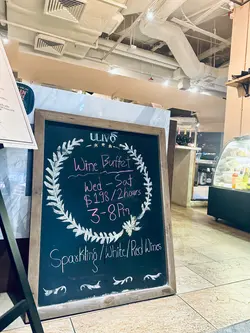 ULIVO
Wine Buffet
Wed - Sat
$198/2hours
3-8Pm
Sparkling/White/Red Wines